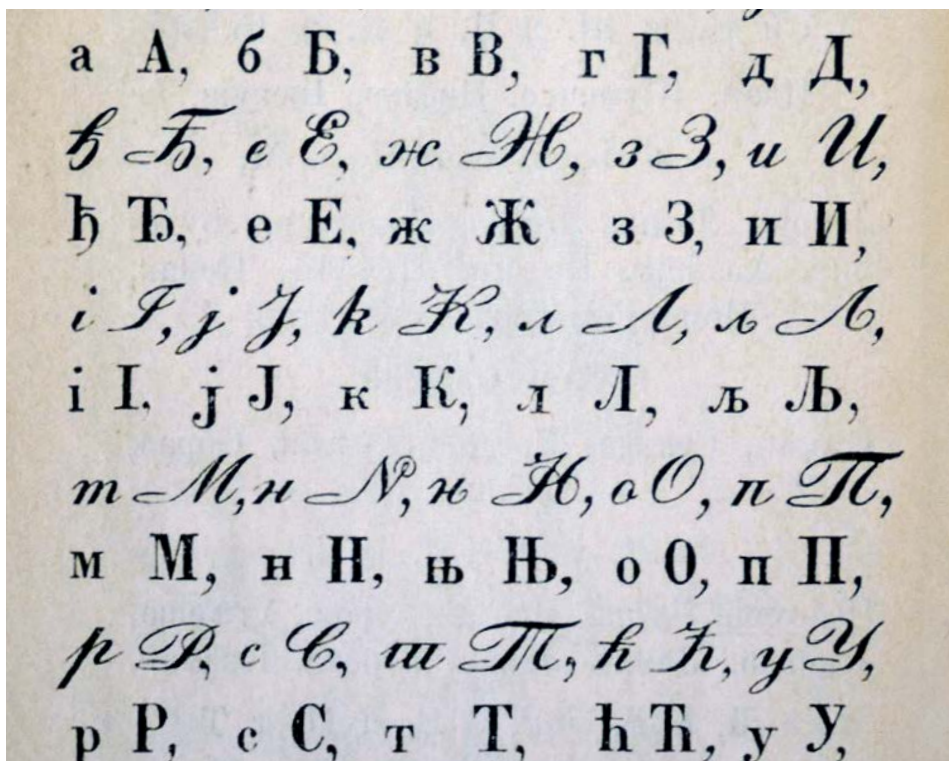 а А, б Б, в В, г Г, д Д,
ђ Ђ, е Е, ж Ж, з З, и И,
ђ Ђ, е Е, ж Ж з З, и И,
і І, ј Ј, к К, л Л, љ Љ,
і І, ј Ј, к К, л Л, љ Љ,
м М, н N, њ Њ, о О, п П,
м М, н Н, њ Њ, о О, п П,
р Р, с С, т Т, ћ Ћ, у У,
р Р, с С, т Т, ћ Ћ, у У,